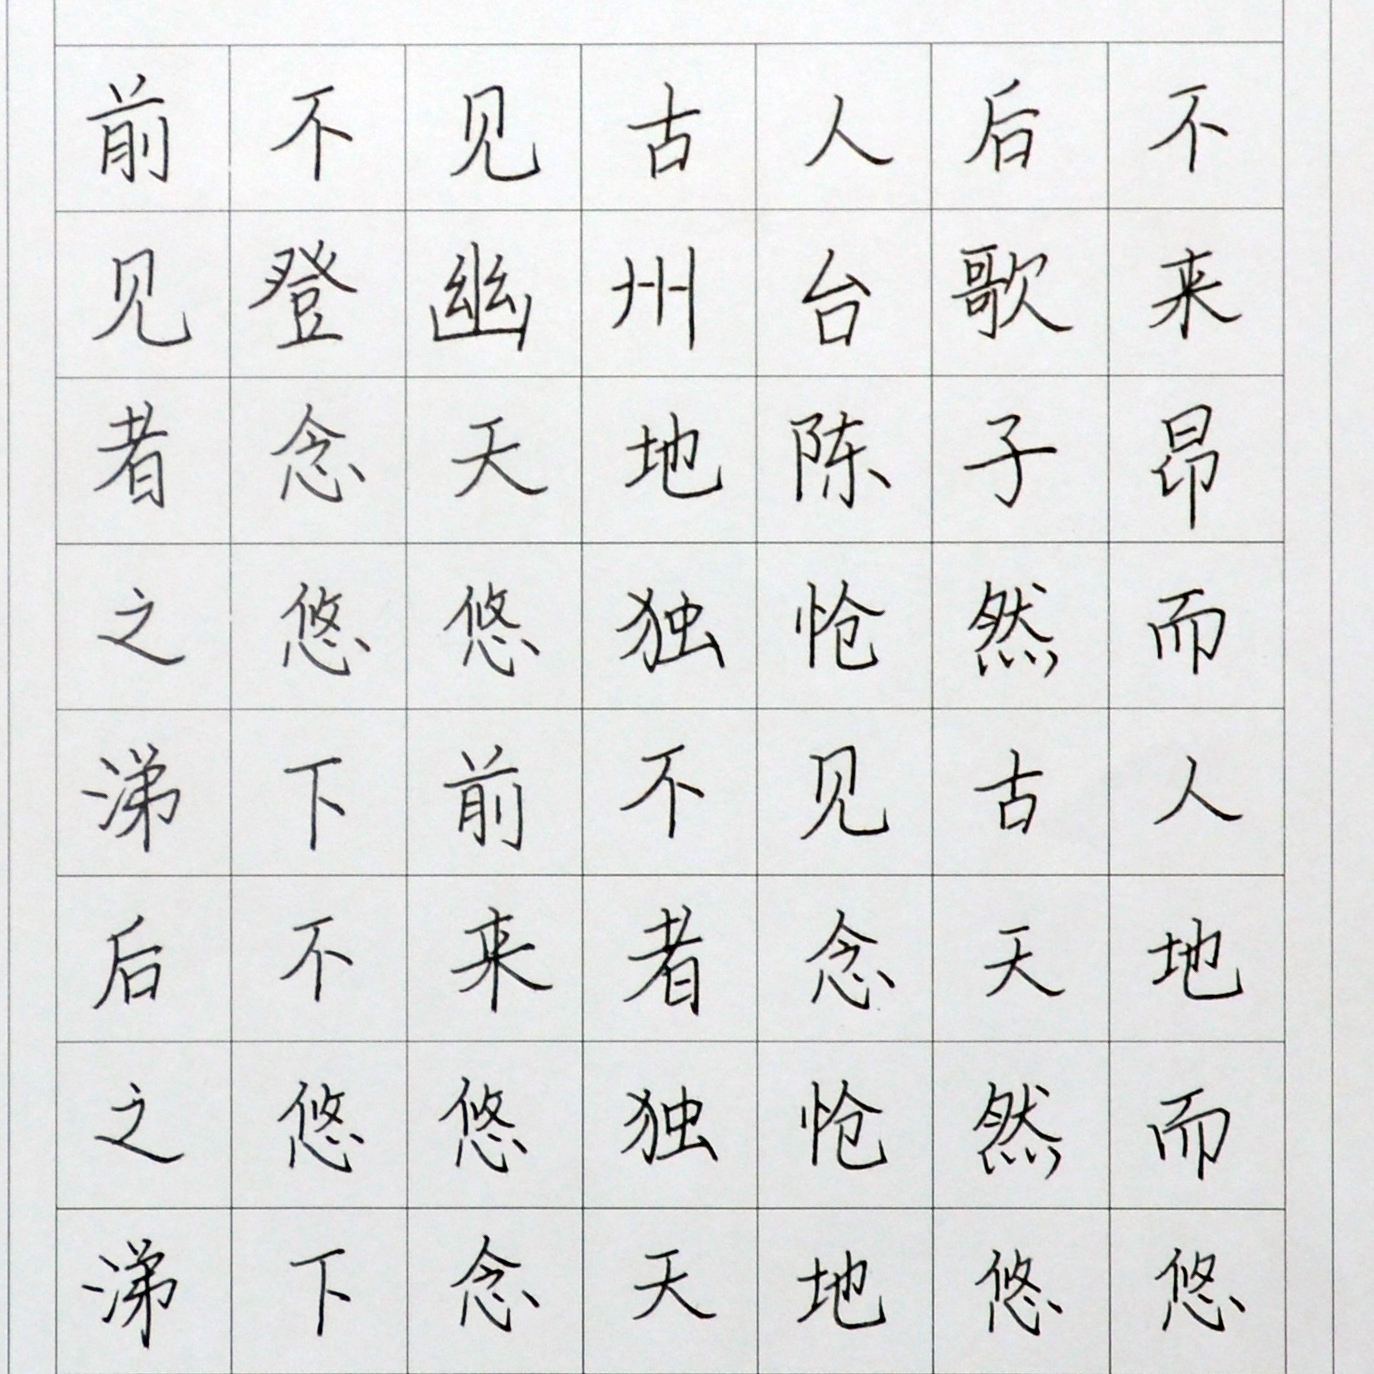 前不见古人后不
见登幽州台歌来
者念天地陈子昂
之悠悠独怆然而
涕下前不见古人
后不来者念天地
之悠悠独怆然而
涕下念天地悠悠